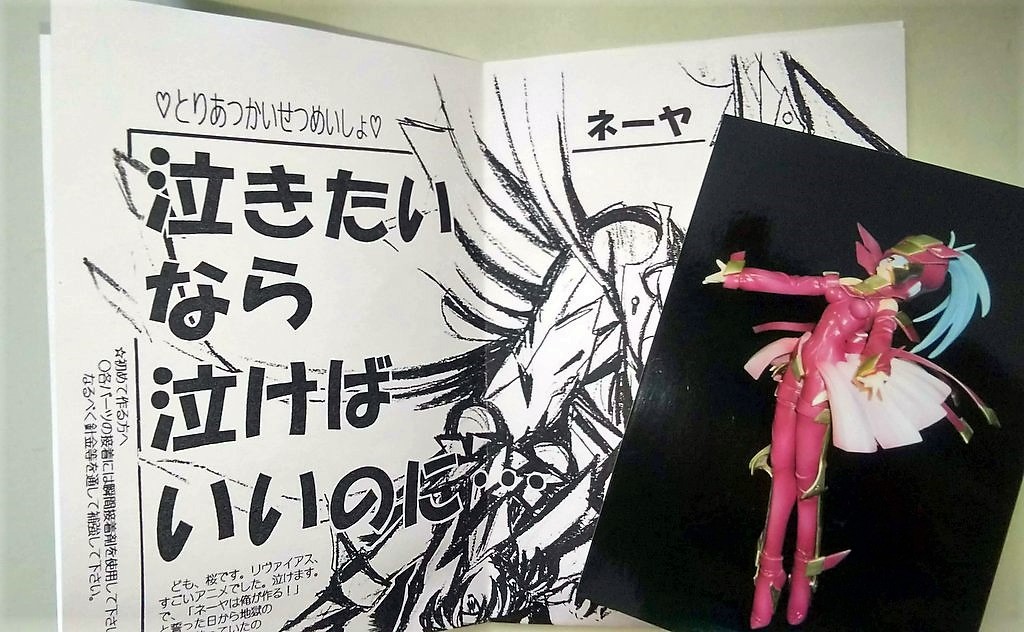 ♡とりあつかいせつめいしょ♡
泣きたい
なら
泣けば
いいのに…
ども、桜です。リヴァイアス、
すごいアニメでした。泣けます。
で、「ネーヤは俺が作る！」
と誓った日から地獄の
☆初めて作る方へ
○各パーツの接着には瞬間接着剤を使用して下さい
なるべく針金等を通して補強して下さい。
ネーヤ